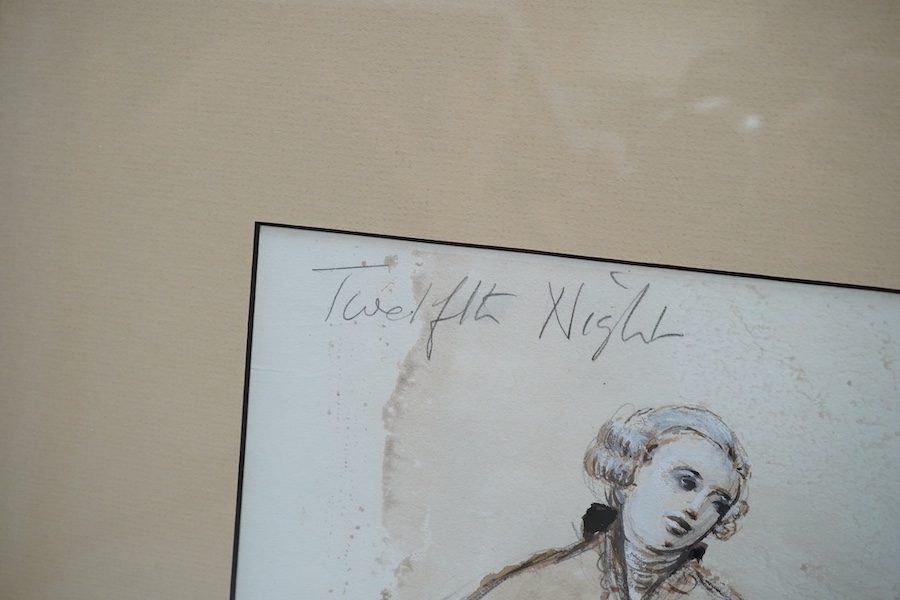 Twelfth Night